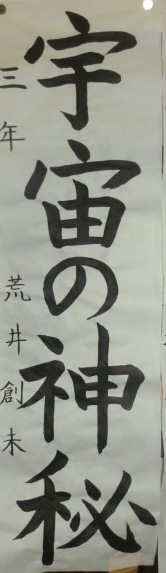 宇宙の神秘
三年 荒井創未